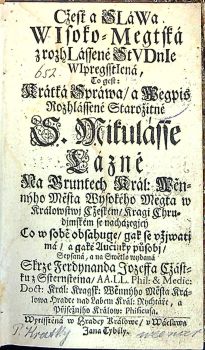 Cžest a SLáWa
WIsoko-Megtská
z rozhLássené StVDnIe
WIpregsstIená,
To gest:
652.
Krátká Spráwa/ a Wegpis
Rozhlássené Starožitné
S. Mikulásse
Lázně
Na Gruntech Král: Wěn-
nýho Města Wysokého Megta w
Králowstwj Cžeském/ Kragi Chru-
dimském se nacházegjcý
Co w sobě obsahuge/ gak se vžjwatj
má/ a gaké Aučinky působj/
Sepsaná/ a na Swětlo wydaná
Skrze Ferdynanda Jozeffa Cžást-
ku z Ssternsteina/ AA. LL. Phil: & Medic:
Doct: Král: Kragsk: Wěnnýho Města Krá-
lowa Hradce nad Labem Král: Rychtáře/ a
Přjsežnýho Králow: Phisicusa.
Wytisstěná w Hradcy Králowé/ v Wácslawa
Jana Tybély.